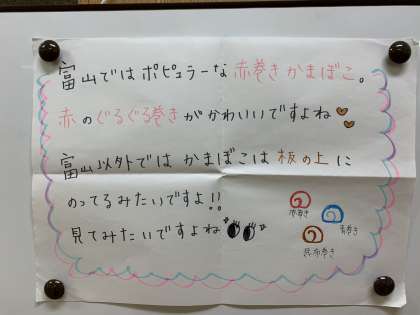 富山ではポピュラーな赤巻きかまぼこ。
赤のぐるぐる巻きがかわいいですよね
富山以外ではかまぼこは板の上に
のってるみたいですよ!!
見てみたいですよね
赤巻き
青巻き
昆布巻き